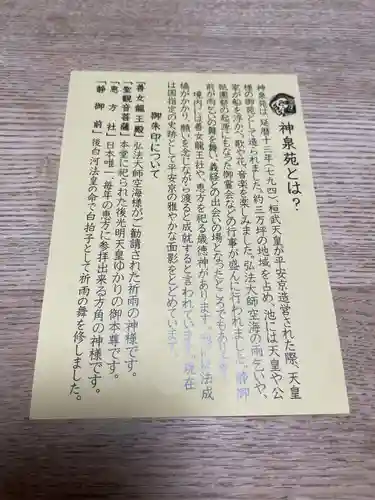 神泉苑とは？
神泉苑は、延暦十三年（七九四）、桓武天皇が平安京造営された際、天皇
様の御苑として造られました。約三万坪の地域を占め、池には天皇や公
家が船を浮かべ、歌や花、音楽を楽しみました。弘法大師空海の雨乞いや、
祇園祭の起源にもなった御霊会などの行事が盛んに行われました。静御
前が雨乞いの舞を舞い、義経との出会いの場となったところでもあります。
境内には善女龍王社や、恵方を祀る歳徳神があります。
橋がかかり、願いを念じながら渡ると成就すると言われています。現在
は国指定の史跡として平安京の雅やかな面影をとどめています。
御朱印について
「善女龍王殿」弘法大師空海様がご勧請された祈雨の神様です。
「聖観音菩薩」本堂に祀られた後光明天皇ゆかりの御本尊です。
「恵方社」日本唯一、毎年の恵方に参拝出来る方角の神様です。
「静御前」後白河法皇の命で白拍子として祈雨の舞を修しました。